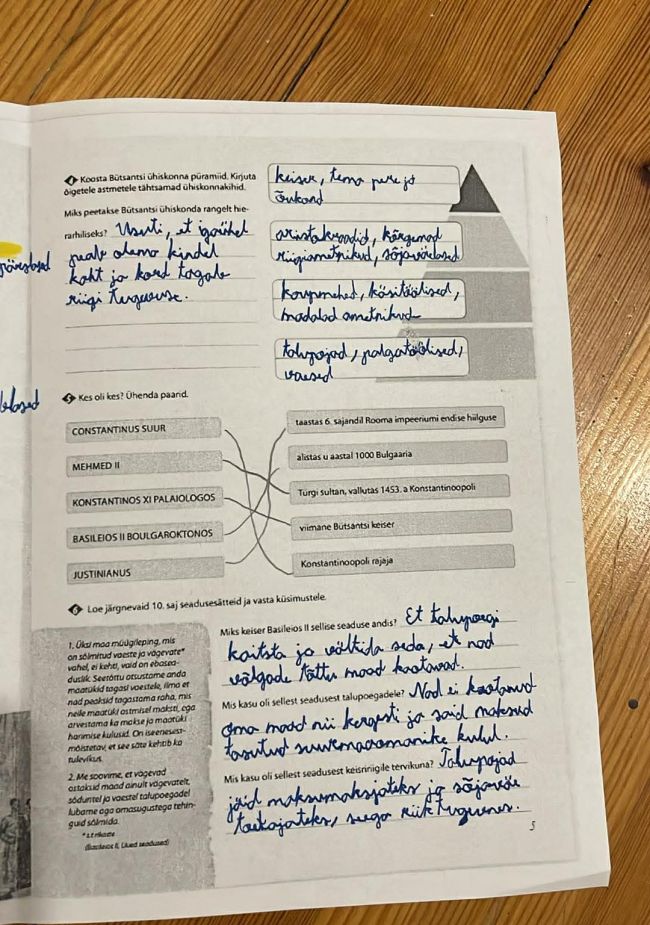 4 Koosta Bütsantsi ühiskonna püramiid. Kirjuta
õigetele astmetele tähtsamad ühiskonnakihid.
Miks peetakse Bütsantsi ühiskonda rangelt hie-
rarhiliseks? Usuti, et igaühel
peab olema kindel
koht ja kord tagab
riigi tugevuse.
keiser, tema pere ja
õukond
aristokraadid, kõrgemad
riigiametnikud, sõjaväelased
kaupmehed, käsitöölised,
madalad ametnikud
talupojad, palgatöölised,
vaesed
5 Kes oli kes? Ühenda paarid.
CONSTANTINUS SUUR
MEHMED II
KONSTANTINOS XI PALAIOLOGOS
BASILEIOS II BOULGAROKTONOS
JUSTINIANUS
taastas 6. sajandil Rooma impeeriumi endise hiilguse
alistas u aastal 1000 Bulgaaria
Türgi sultan, vallutas 1453. a Konstantinoopoli
viimane Bütsantsi keiser
Konstantinoopoli rajaja
6 Loe järgnevaid 10. saj seadusesätteid ja vasta küsimustele.
1. Üksi maa müügileping, mis
on sõlmitud vaeste ja vägevate*
vahel, ei kehti, vaid on ebasea-
duslik. Seetõttu otsustame anda
maatükid tagasi vaestele, ilma et
nad peaksid tagastama raha, mis
neile maatüki ostmisel maksti, ega
arvestama ka makse ja maatüki
harimise kulusid. On iseenesest-
mõistetav, et see säte kehtib ka
tulevikus.
2. Me soovime, et vägevad
ostaksid maad ainult vägevatelt,
sõduritel ja vaestel talupoegadel
lubame aga omasugustega tehin-
guid sõlmida.
(Basileios II, Uued seadused)
Miks keiser Basileios II sellise seaduse andis? Et talupoegi
kaitsta ja vältida seda, et nad
võlgade tõttu maad kaotavad.
Mis kasu oli sellest seadusest talupoegadele? Nad ei kaotanud
oma maad nii kergesti ja said maksud
tasutud suurmaaomanike kulul.
Mis kasu oli sellest seadusest keisririigile tervikuna? Talupojad
jäid maksumaksjateks ja sõjaväe
toetajateks, seega riik tugevnes.
5